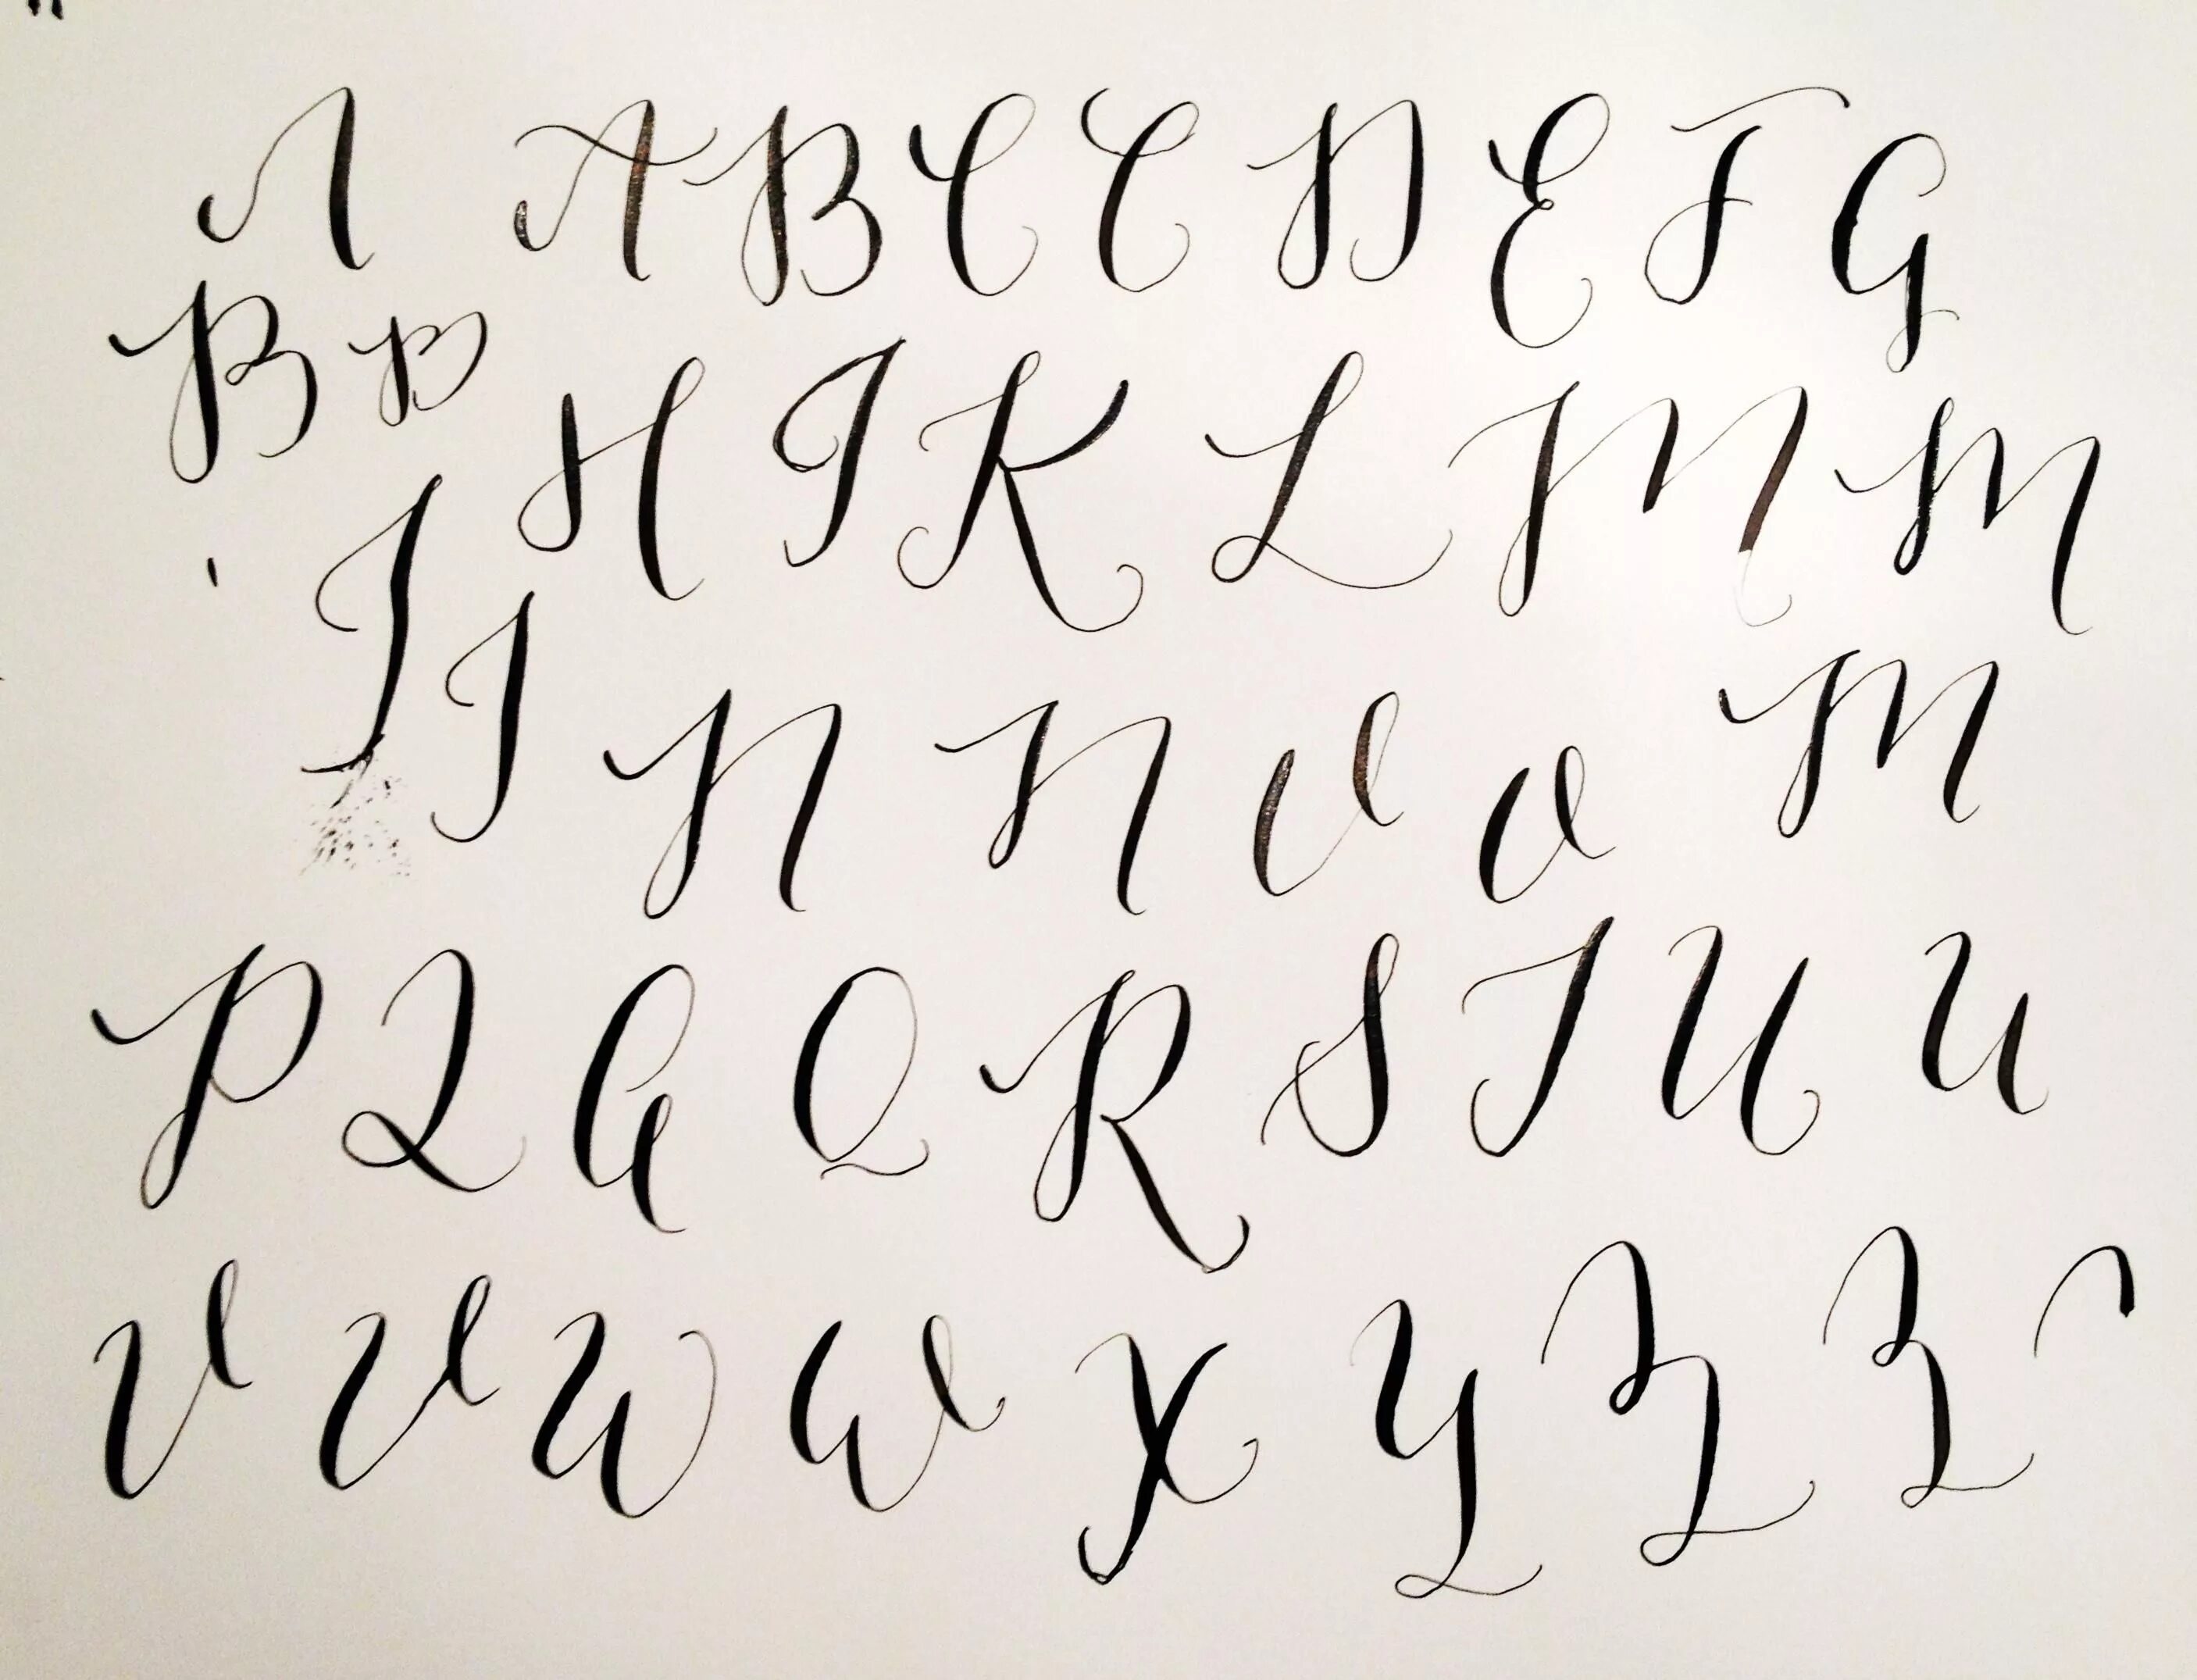 A A B C C D E F G
B B
H I K L M M
J J N N O O M
P Q Q Q R S T U U
V V W W X Y Z Z